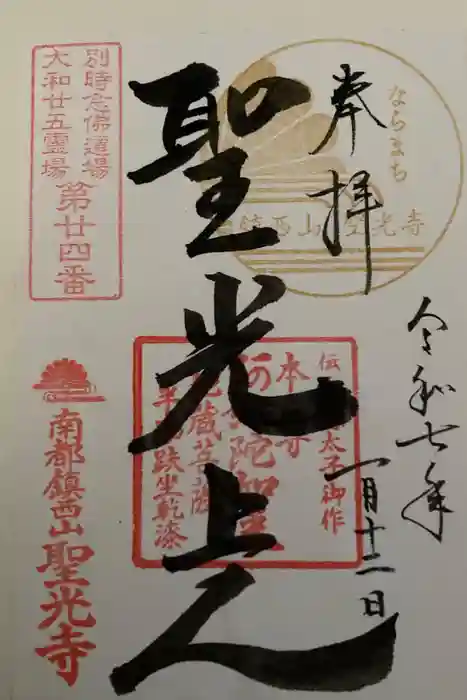 奉拝
ならまち
南都鎮西山 聖光寺
令和七年
一月十二日
聖光上人
伝 太子御作
本尊
阿弥陀如来
地蔵菩薩
半跏趺坐乾漆
別時念佛道場
大和廿五霊場
第廿四番
南都鎮西山
聖光寺